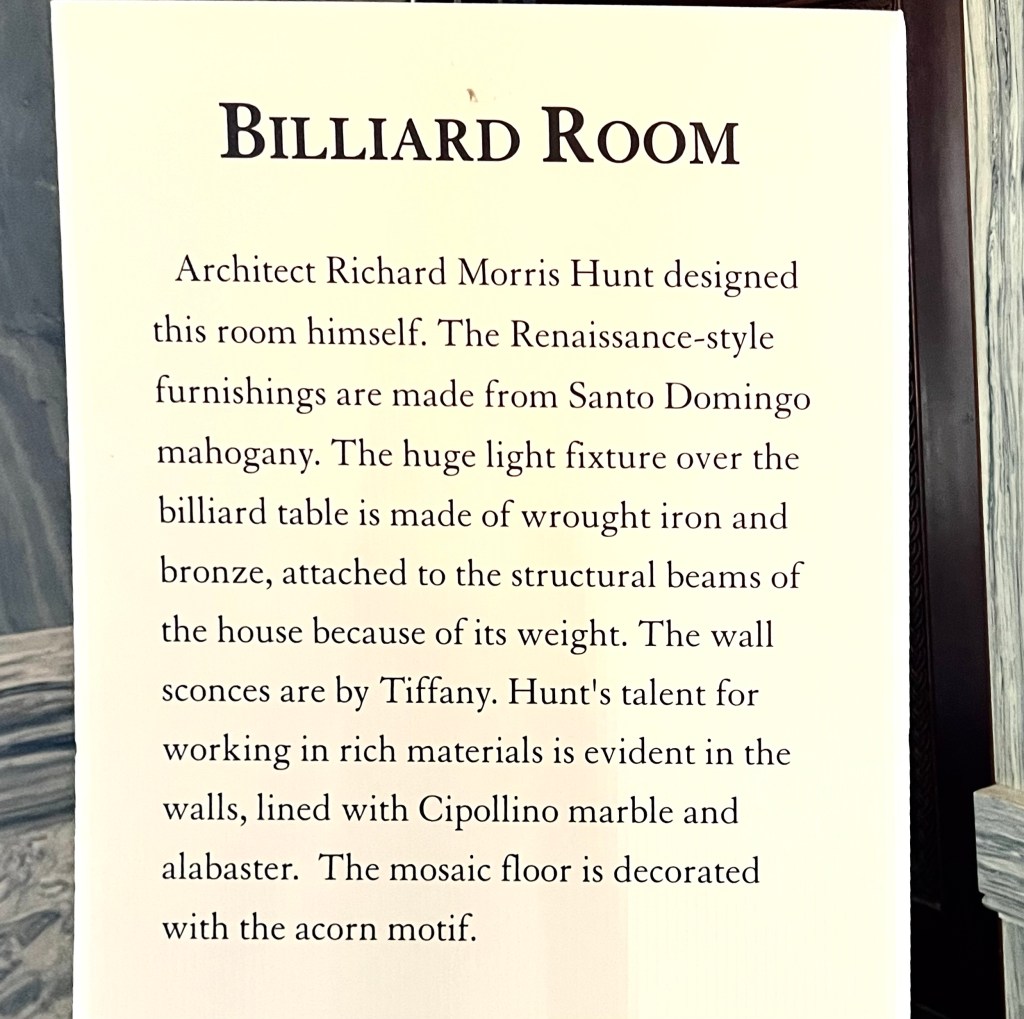 BILLIARD ROOM
Architect Richard Morris Hunt designed
this room himself. The Renaissance-style
furnishings are made from Santo Domingo
mahogany. The huge light fixture over the
billiard table is made of wrought iron and
bronze, attached to the structural beams of
the house because of its weight. The wall
sconces are by Tiffany. Hunt's talent for
working in rich materials is evident in the
walls, lined with Cipollino marble and
alabaster.  The mosaic floor is decorated
with the acorn motif.